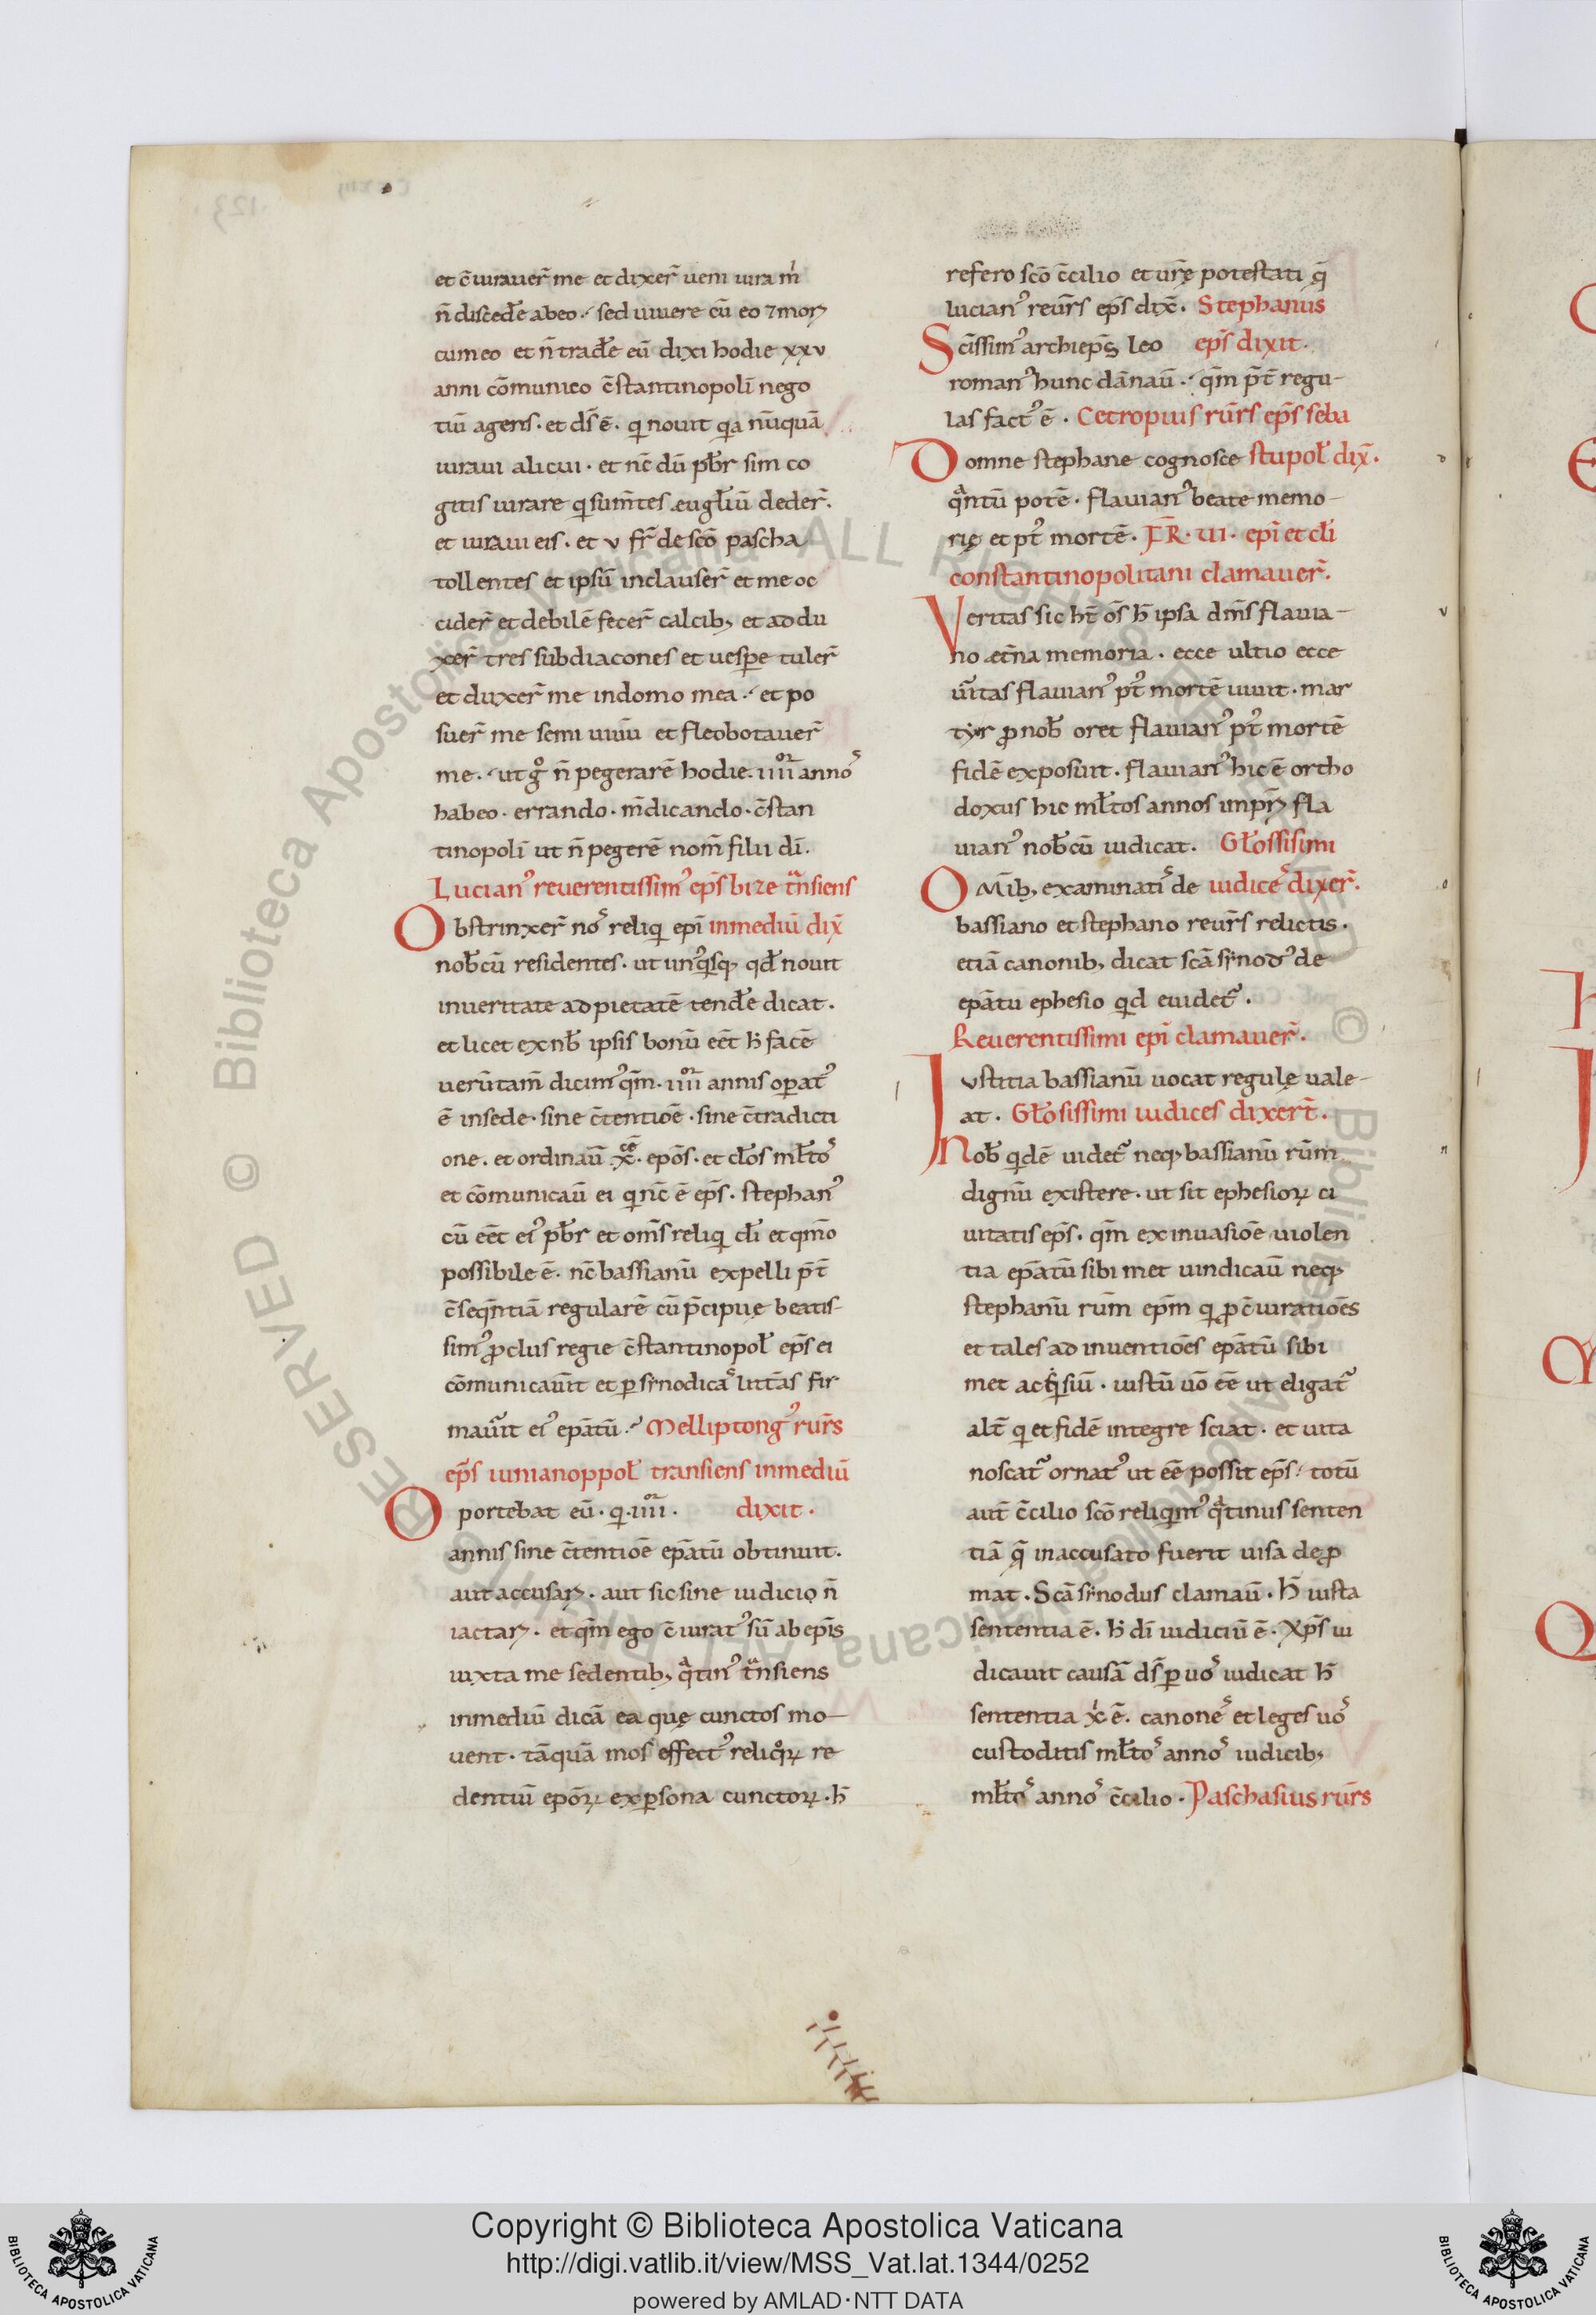 et c̄iurauer̄ me et dixer̄ ueni iura m̍
n̄ disced̄e abeo. sed uiuere cū eo ⁊ mor
cum eo et n̄ trad̄e eū dixi hodie xxv
anni cōmunico c̄stantinopoli nego
tiū agens. et ds̄ ē. qi nouit qa nūquā
iuraui alicui. et nc̄ dū pbr̄ sim co
gitis iurare qi sum̄tes eugl̄iū deder̄.
et iuraui eis. et v fr̄ de sc̄o pascha
tollentes et ipsū inclauser̄ et me oc
cider̄ et debilē fecer̄ calcib; et ad du
xer̄ tres subdiacones et uesꝑe tuler̄
et duxer̄ me indomo mea. et po
suer̄ me semi uiuū et fleobotauer̄
me. ut gͦ n̄ pegerarē hodie. iiii annoˢ
habeo. errando. m̄dicando. c̄stan
tinopoli ut n̄ pegerē nom̄ filii dī.
Lucianꝰ reuerentissimꝰ ep̄s bize tᵃnsiens
Obstrinxer̄ noˢ reliqi epī inmediū dix̄
nob̄cū residentes. ut unꝰqisqꝫ qd̄ nouit
inueritate ad pietatē tend̄e dicat.
et licet ex nb̄ ipsis bonū eēt h̄ facē
uerūtam̄ dicimꝰ qm̄. iiii annis oꝑatꝰ
ē insede. sine c̄tentioē. sine c̄tradicti
one. et ordinaū x̄. ep̄os. et cl̄os ml̄toˢ
et cōmunicaū ei qi nc̄ ē ep̄s. stephanꝰ
cū eēt eiꝰ pbr̄ et om̄s reliqi cl̄i et qm̄o
possibile ē. nc̄ bassianū expelli p̄t̄
c̄seqn̄tiā regularē cū p̄cipuę beatis-
simꝰ ꝓclus regie c̄stantinopol̄ ep̄s ei
cōmunicaūit et ꝑ synodicaˢ litt̄as fir
maūit eiꝰ epātū. Melliptongꝰ rūrs
ep̄s iunianoppol̄ transiens inmediū
Oportebat eū. qi. iiii. dixit.
annis sine c̄tentioē epātū obtinuit.
aut accusar. aut sic sine iudicio n̄
iactar. et qm̄ ego c̄iuratꝰ sū ab epīs
iuxta me sedentib; qᵃtinꝰ tᵃnsiens
inmediū dicā ea quę cunctos mo-
uent. tāquā mos effectꝰ reliqoꝝ re
dentiū epoꝝ exꝑsona cunctoꝝ. h̄
refero sc̄o c̄cilio et ur̄ę potestati q̄
lucianꝰ reūrs ep̄s dix̄. Stephanus
Sc̄issimꝰ archiep̄s leo ep̄s dixit.
romanꝰ hunc dānaū. qm̄ p̄t̄ regu-
las factꝰ ē. Cetropius rūrs ep̄s seba
Domne stephane cognosce stupol̄ dix̄.
qᵃntū potē. flauianꝰ beate memo-
rię et ptꝰ mortē. FR̄. VI. epī et cl̄i
constantinopolitani clamauer̄.
Veritas sic ht̄ os̄ h̄ ipsa dm̄s flauia-
no et̄na memoria. ecce ultio ecce
ūitas flauianꝰ ptꝰ mortē uiuit. mar
tyr ꝓ nob̄ oret flauianꝰ ptꝰ mortē
fidē exposuit. flauianꝰ hic ē ortho
doxus hic ml̄tos annos impr̄ fla
uianꝰ nob̄cū iudicat. Gl̄ossisimi
Om̄ib; examinatiˢ de iudiceˢ dixer̄.
bassiano et stephano reūrs relictis.
etiā canonib; dicat sc̄a synodꝰ de
epātu ephesio qid euidet̄.
Reuerentissimi epī clamauer̄.
Iustitia bassianū uocat regulę uale-
at. Gl̄osissimi iudices dixert̄.
Nob̄ qidē uidet̄ neqꝫ bassianū rūm
dignū existere. ut sit ephesioꝝ ci
uitatis ep̄s. qm̄ ex inuasioē uiolen
tia epātū sibi met uindicaū neqꝫ
stephanū rūm ep̄m qi ꝓ c̄iuratioēs
et tales ad inuentioēs epātū sibi
met acqisiū. iustū uō eē ut eligat̄
alt̄ qi et fidē integre sciat. et uita
noscat̄ ornatꝰ ut eē possit ep̄s. totū
aut̄ c̄cilio sc̄o reliqimꝰ qᵃtinus senten
tiā q̄ inaccusato fuerit uisa deꝓ
mat. Scā synodus clamaū. h̄ iusta
sententia ē. h̄ dī iudiciū ē. Xp̄s iu
dicauit causā ds̄ ꝑ uoˢ iudicat h̄
sententia x̍ ē. canoneˢ et leges uoˢ
custoditis ml̄toˢ annoˢ iudicib;
ml̄toˢ annoˢ c̄cilio. Paschasius rūrs
Copyright © Biblioteca Apostolica Vaticana
http://digi.vatlib.it/view/MSS_Vat.lat.1344/0252
powered by AMLAD·NTT DATA